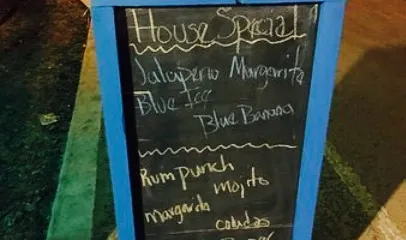 House Special
Jalapeno Margarita
Blue Ice
Blue Banana
Rum punch
mojito
margarita
coladas